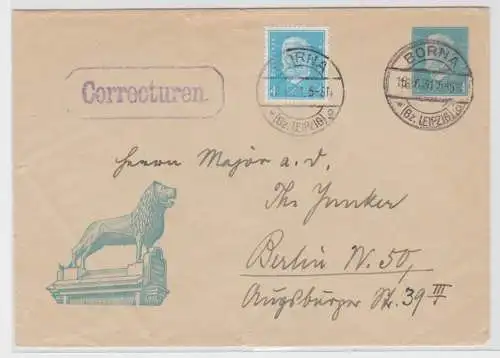 BORNA
BORNA
Correcturen.
4
5-6N
* (Bz. LEIPZIG)
* (Bz. LEIPZIG)
Herrn Major a. D.
Th. Junker
Berlin W. 50,
Augsburger Str. 39 III